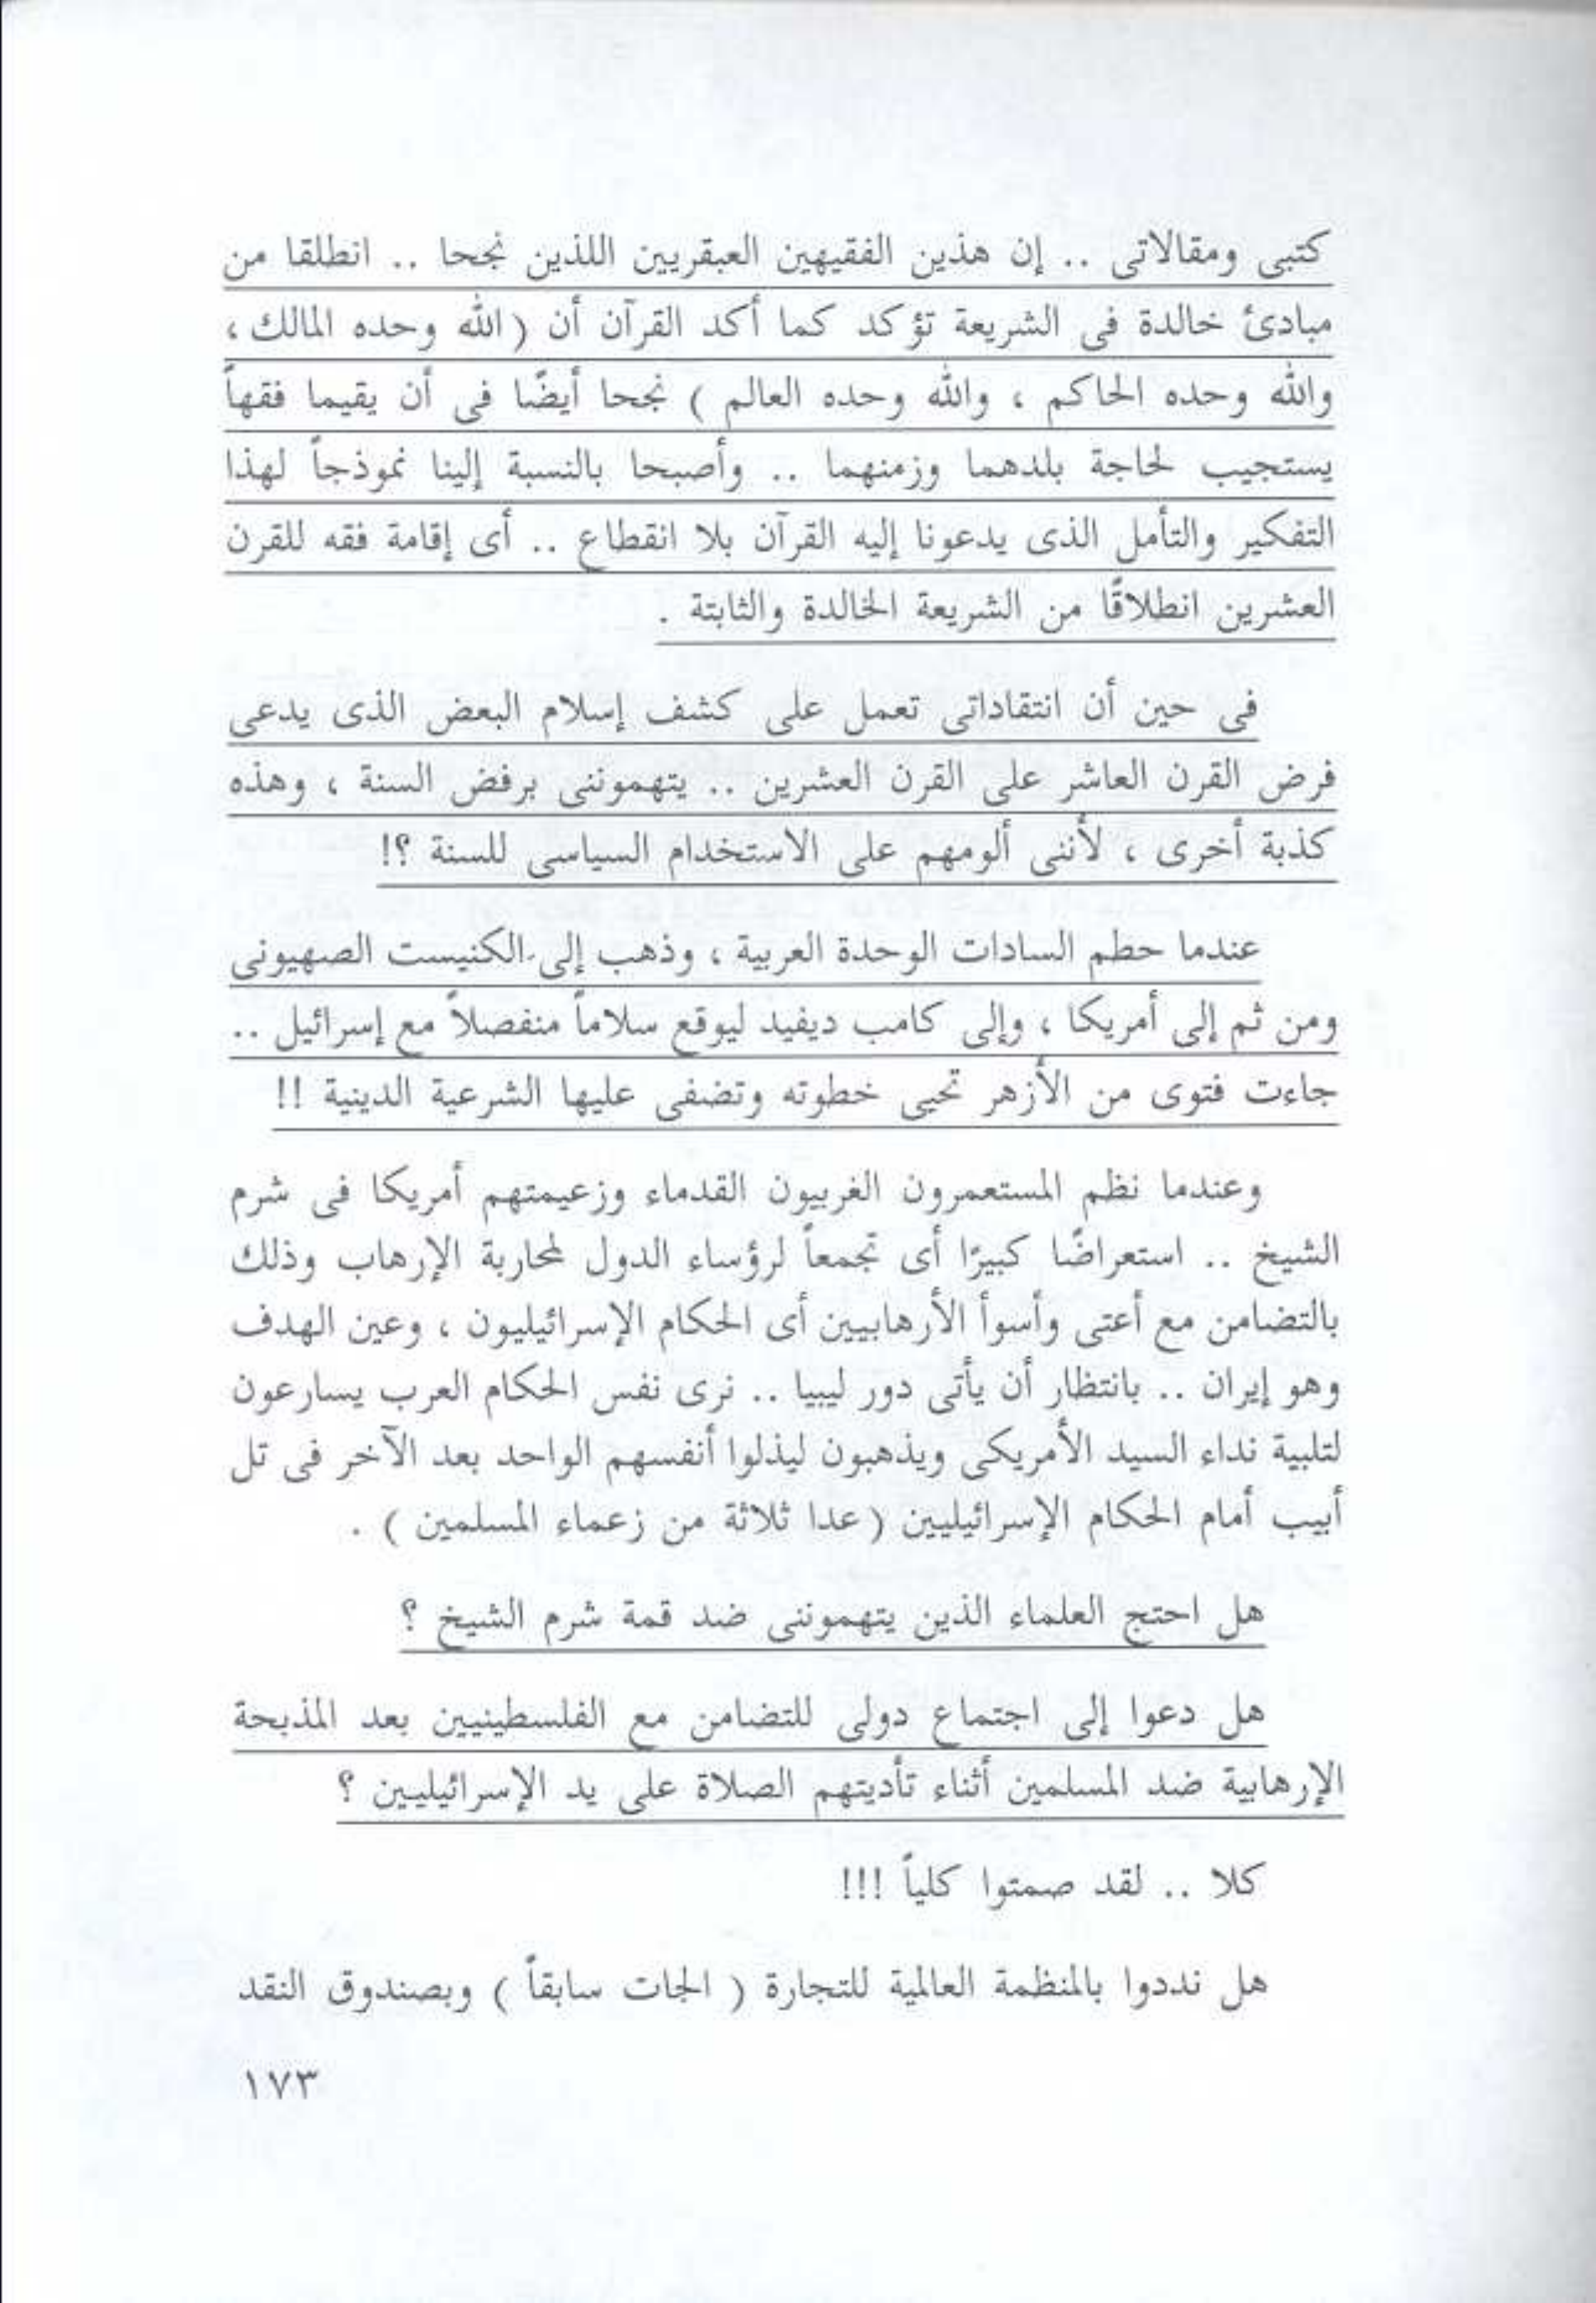 كتبى ومقالاتى .. إن هذين الفقيهين العبقريين اللذين نجحا .. انطلقا من
مبادئ خالدة فى الشريعة تؤكد كما أكد القرآن أن ( الله وحده المالك ،
والله وحده الحاكم ، والله وحده العالم ) نجحا أيضًا فى أن يقيما فقهاً
يستجيب لحاجة بلدهما وزمنهما .. وأصبحا بالنسبة إلينا نموذجاً لهذا
التفكير والتأمل الذى يدعونا إليه القرآن بلا انقطاع .. أى إقامة فقه للقرن
العشرين انطلاقًا من الشريعة الخالدة والثابتة .
فى حين أن انتقاداتى تعمل على كشف إسلام البعض الذى يدعى
فرض القرن العاشر على القرن العشرين .. يتهموننى برفض السنة ، وهذه
كذبة أخرى ، لأننى ألومهم على الاستخدام السياسى للسنة ؟!
عندما حطم السادات الوحدة العربية ، وذهب إلى الكنيست الصهيونى
ومن ثم إلى أمريكا ، وإلى كامب ديفيد ليوقع سلاماً منفصلاً مع إسرائيل ..
جاءت فتوى من الأزهر تحيى خطوته وتضفى عليها الشرعية الدينية !!
وعندما نظم المستعمرون الغربيون القدماء وزعيمتهم أمريكا فى شرم
الشيخ .. استعراضًا كبيرًا أى تجمعاً لرؤساء الدول لمحاربة الإرهاب وذلك
بالتضامن مع أعتى وأسوأ الأرهابيين أى الحكام الإسرائيليون ، وعين الهدف
وهو إيران .. بانتظار أن يأتى دور ليبيا .. نرى نفس الحكام العرب يسارعون
لتلبية نداء السيد الأمريكى ويذهبون ليذلوا أنفسهم الواحد بعد الآخر فى تل
أبيب أمام الحكام الإسرائيليين ( عدا ثلاثة من زعماء المسلمين ) .
هل احتج العلماء الذين يتهموننى ضد قمة شرم الشيخ ؟
هل دعوا إلى اجتماع دولى للتضامن مع الفلسطينيين بعد المذبحة
الإرهابية ضد المسلمين أثناء تأديتهم الصلاة على يد الإسرائيليين ؟
كلا .. لقد صمتوا كلياً !!!
هل نددوا بالمنظمة العالمية للتجارة ( الجات سابقاً ) وبصندوق النقد
١٧٣